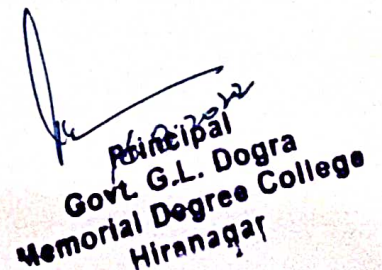 Principal
Govt. G.L. Dogra
Memorial Degree College
Hiranagar